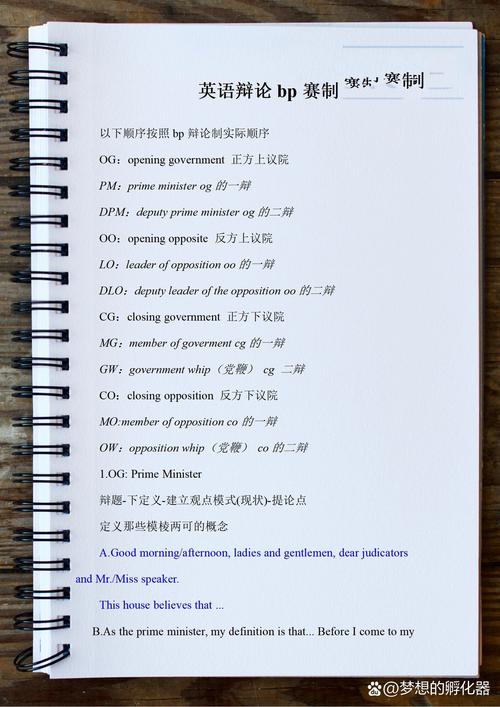 英语辩论 bp 赛制 赛制 赛制
以下顺序按照 bp 辩论制实际顺序
OG：opening government 正方上议院
PM：prime minister og 的一辩
DPM：deputy prime minister og 的二辩
OO：opening opposite 反方上议院
LO：leader of opposition oo 的一辩
DLO：deputy leader of the opposition oo 的二辩
CG：closing government 正方下议院
MG：member of goverment cg 的一辩
GW：government whip（党鞭） cg 二辩
CO：closing opposition 反方下议院
MO:member of opposition co 的一辩
OW：opposition whip（党鞭） co 的二辩
1.OG: Prime Minister
辩题-下定义-建立观点模式(现状)-提论点
定义那些模棱两可的概念
A.Good morning/afternoon, ladies and gentlemen, dear judicators
and Mr./Miss speaker.
This house believes that ...
B.As the prime minister, my definition is that... Before I come to my
@梦想的孵化器